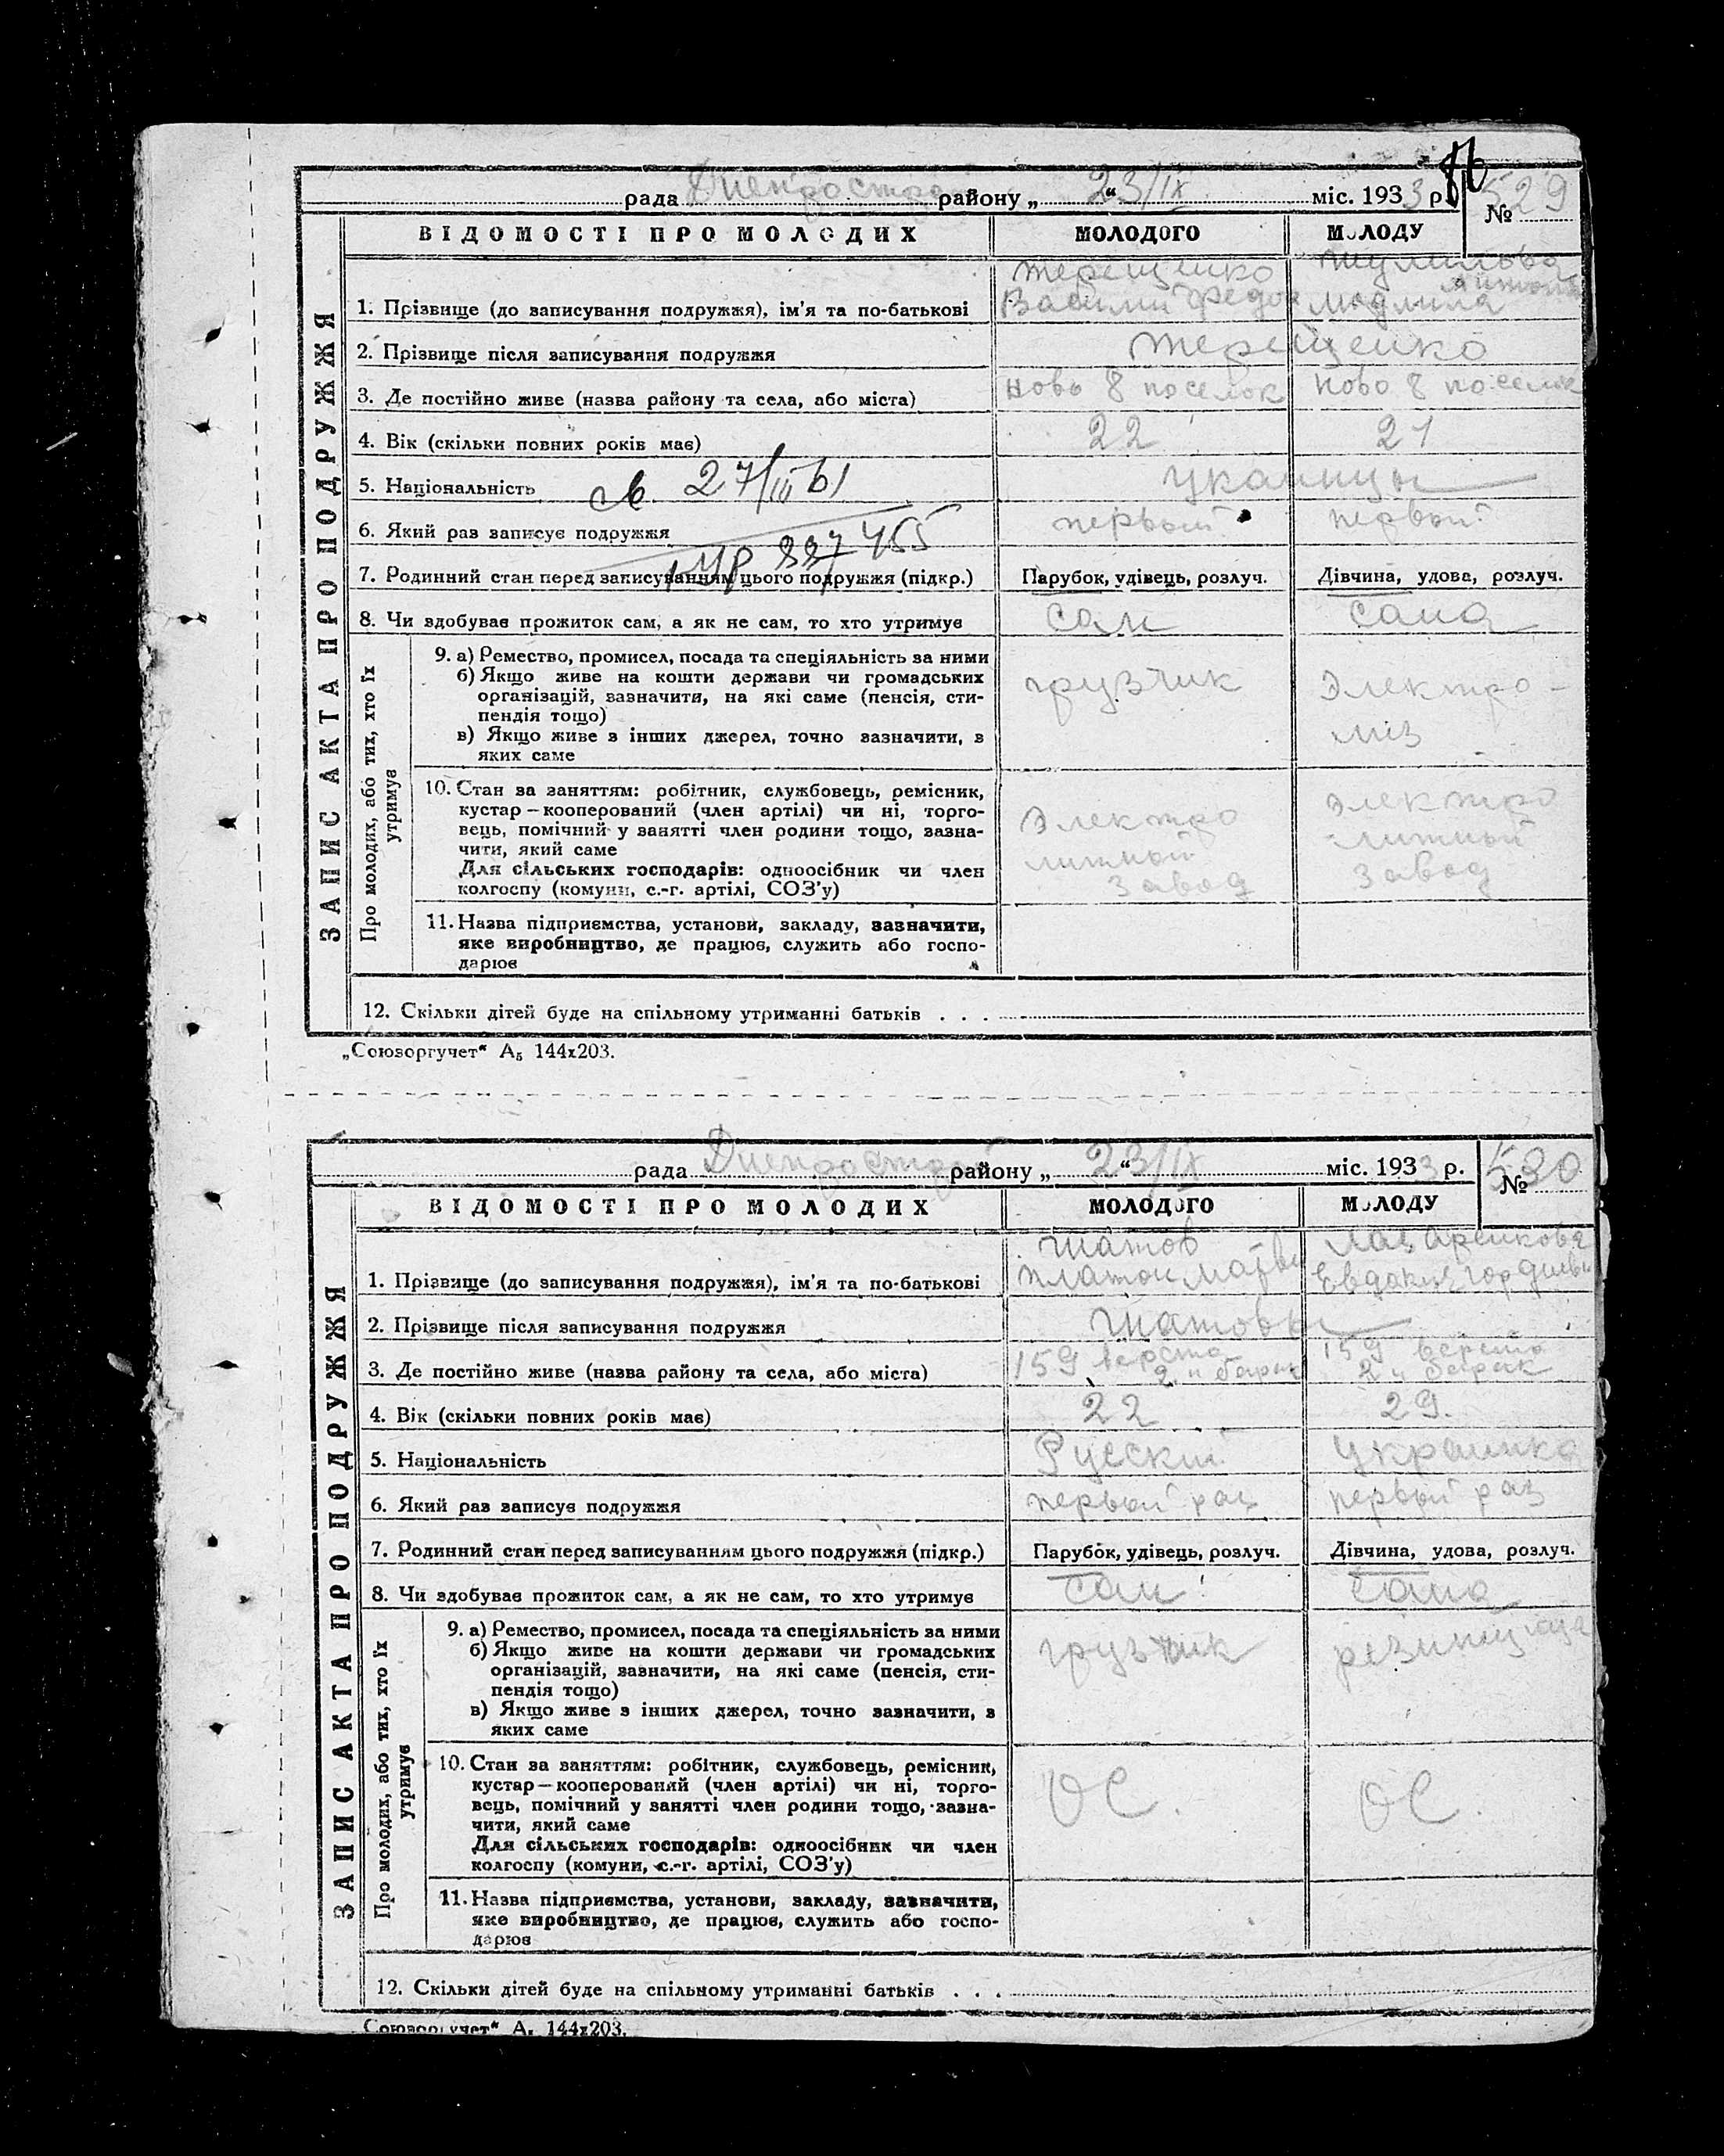 86
рада Днепрострой району „ 23/IX “ міс. 1933 р. № 529
ЗАПИС АКТА ПРО ПОДРУЖЖЯ
ВІДОМОСТІ ПРО МОЛОДИХ МОЛОДОГО МОЛОДУ
Терещенко
1. Прізвище (до записування подружжя), ім’я та по-батькові Василий Федор Людмила
2. Прізвище після записування подружжя Терещенко
3. Де постійно живе (назва району та села, або міста) Ново 8 поселок Ново 8 поселок
4. Вік (скільки повних років має) 22 21
5. Національність 27/III 61 украинцы
6. Який раз записує подружжя первый первый
УР 887455
7. Родинний стан перед записуванням цього подружжя (підкр.) Парубок, удівець, розлуч. Дівчина, удова, розлуч.
8. Чи здобуває прожиток сам, а як не сам, то хто утримує сам сама
Про молодих, або тих, хто їх утримує
9. а) Ремество, промисел, посада та спеціяльність за ними
б) Якщо живе на кошти держави чи громадських грузчик Электро-
організацій, зазначити, на які саме (пенсія, сти-
пендія тощо)
в) Якщо живе з інших джерел, точно зазначити, з
яких саме
10. Стан за заняттям: робітник, службовець, ремісник,
кустар—кооперований (член артілі) чи ні, торго- Электро Электро
вець, помічний у занятті член родини тощо, зазна-
чити, який саме литный литный
Для сільських господарів: одноосібник чи член завод завод
колгоспу (комуни, с.-г. артілі, СОЗ’у)
11. Назва підприємства, установи, закладу, зазначити,
яке виробництво, де працює, служить або госпо-
дарює
12. Скільки дітей буде на спільному утриманні батьків . . .
„Союзоргучет“ А₅ 144х203.
рада Днепрострой району „ 23/IX “ міс. 1933 р. № 530
ЗАПИС АКТА ПРО ПОДРУЖЖЯ
ВІДОМОСТІ ПРО МОЛОДИХ МОЛОДОГО МОЛОДУ
Шатов Лазаренкова
1. Прізвище (до записування подружжя), ім’я та по-батькові Платон Матви Евдокия Гордиевн
2. Прізвище після записування подружжя Шатовы
3. Де постійно живе (назва району та села, або міста) 159 верста 2й барак 159 верста 2й барак
4. Вік (скільки повних років має) 22 29.
5. Національність Русский Украинка
6. Який раз записує подружжя первый раз первый раз
7. Родинний стан перед записуванням цього подружжя (підкр.) Парубок, удівець, розлуч. Дівчина, удова, розлуч.
8. Чи здобуває прожиток сам, а як не сам, то хто утримує сам сама
Про молодих, або тих, хто їх утримує
9. а) Ремество, промисел, посада та спеціяльність за ними
б) Якщо живе на кошти держави чи громадських грузчик
організацій, зазначити, на які саме (пенсія, сти-
пендія тощо)
в) Якщо живе з інших джерел, точно зазначити, з
яких саме
10. Стан за заняттям: робітник, службовець, ремісник,
кустар—кооперований (член артілі) чи ні, торго-
вець, помічний у занятті член родини тощо, зазна- ОС. ОС.
чити, який саме
Для сільських господарів: одноосібник чи член
колгоспу (комуни, с.-г. артілі, СОЗ’у)
11. Назва підприємства, установи, закладу, зазначити,
яке виробництво, де працює, служить або госпо-
дарює
12. Скільки дітей буде на спільному утриманні батьків . . .
„Союзоргучет“ А₅ 144х203.